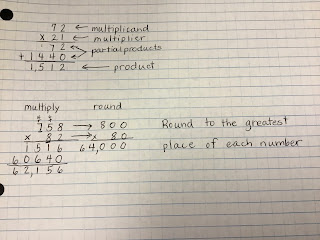 72 ← multiplicand
x 21 ← multiplier
72 ← partial products
+ 1440 ←
1,512 ← product
multiply round
758 → 800
x 82 → x 80
1516 64,000
60640
62,156
Round to the greatest
place of each number